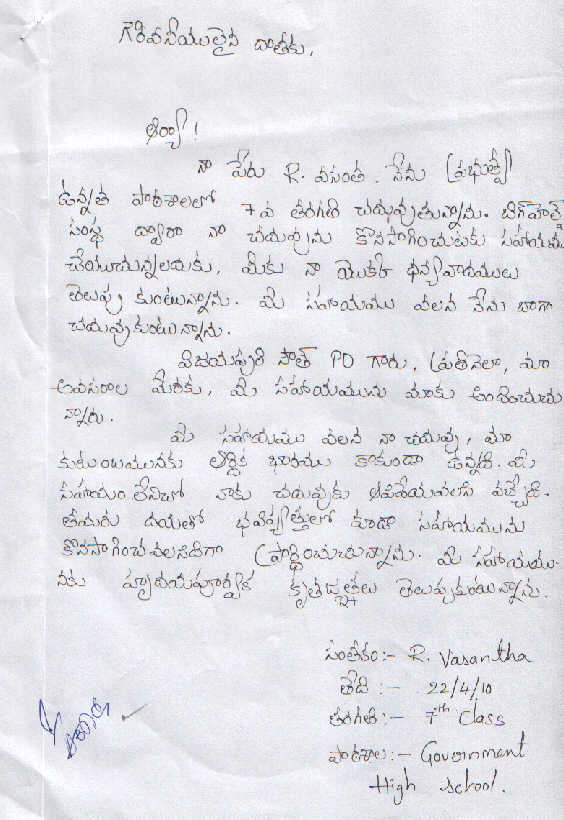 గౌరవనీయులైన దాతకు,
ఆర్యా!
నా పేరు R. వసంత. నేను ప్రభుత్వ
ఉన్నత పాఠశాలలో 7వ తరగతి చదువుతున్నాను.
సంస్థ ద్వారా నా చదువును కొనసాగించుటకు సహాయము
చేయుచున్నందుకు, మీకు నా యొక్క ధన్యవాదములు
తెలుపు కుంటున్నాను. మీ సహాయము వలన నేను బాగా
చదువుకుంటున్నాను.
విజయపురి సౌత్ PD గారు, ప్రతీనెలా, మా
అవసరాల మేరకు, మీ సహాయమును మాకు అందించుచు
న్నారు.
మీ సహాయము వలన నా చదువు, మా
కుటుంబమునకు ఆర్థిక భారము కాకుండా ఉన్నది. మీ
సహాయం లేనిచో నాకు చదువుకు ఆపివేయవలసి వచ్చేది.
తమరు దయతో భవిష్యత్తులో కూడా సహాయమును
కొనసాగించవలసిదిగా ప్రార్థించుచున్నాను. మీ సహాయము
నకు హృదయపూర్వక కృతజ్ఞతలు తెలుపుకుంటున్నాను.
సంతకం:- R. Vasantha
తేది :- 22/4/10
తరగతి:- 7th Class
పాఠశాల:- Government
High school.